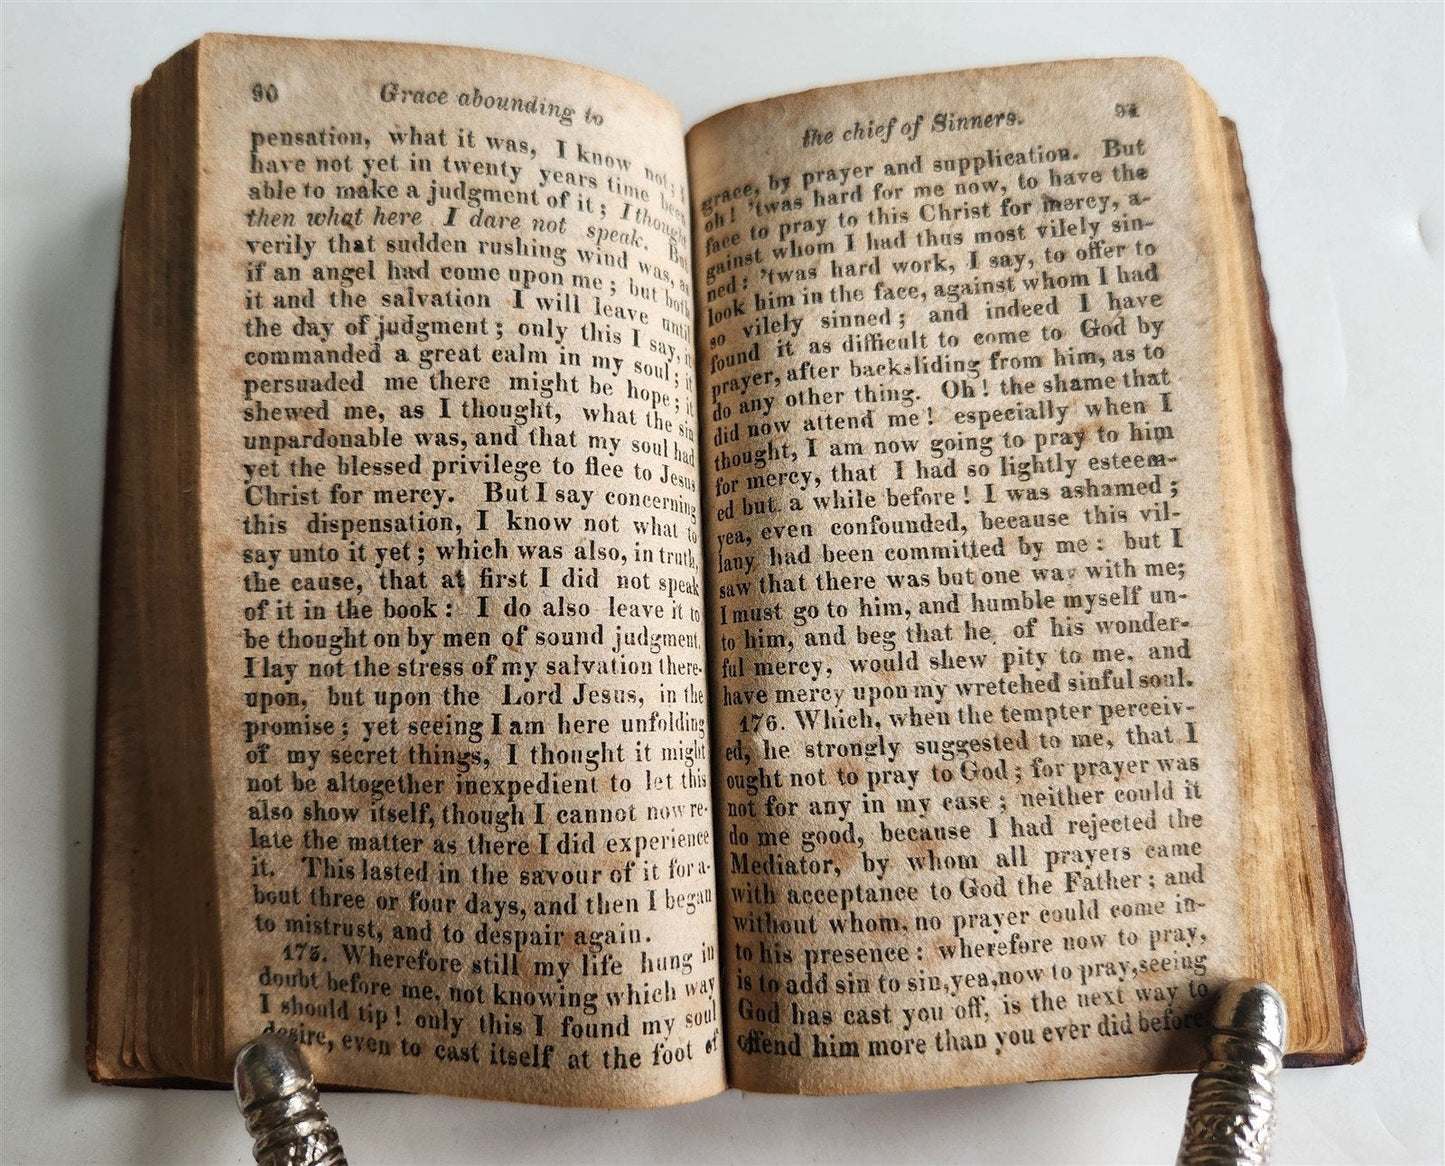 90 Grace abounding to
pensation, what it was, I know not; I
have not yet in twenty years time been
able to make a judgment of it; I thought
then what here I dare not speak. But
verily that sudden rushing wind was, as
if an angel had come upon me; but both
it and the salvation I will leave until
the day of judgment; only this I say, it
commanded a great calm in my soul; it
persuaded me there might be hope; it
shewed me, as I thought, what the sin
unpardonable was, and that my soul had
yet the blessed privilege to flee to Jesus
Christ for mercy. But I say concerning
this dispensation, I know not what to
say unto it yet; which was also, in truth,
the cause, that at first I did not speak
of it in the book: I do also leave it to
be thought on by men of sound judgment.
I lay not the stress of my salvation there-
upon, but upon the Lord Jesus, in the
promise; yet seeing I am here unfolding
of my secret things, I thought it might
not be altogether inexpedient to let this
also show itself, though I cannot now re-
late the matter as there I did experience
it. This lasted in the savour of it for a-
bout three or four days, and then I began
to mistrust, and to despair again.
175. Wherefore still my life hung in
doubt before me, not knowing which way
I should tip! only this I found my soul
desire, even to cast itself at the foot of
the chief of Sinners. 91
grace, by prayer and supplication. But
oh! 'twas hard for me now, to have the
face to pray to this Christ for mercy, a-
gainst whom I had thus most vilely sin-
ned: 'twas hard work, I say, to offer to
look him in the face, against whom I had
so vilely sinned; and indeed I have
found it as difficult to come to God by
prayer, after backsliding from him, as to
do any other thing. Oh! the shame that
did now attend me! especially when I
thought, I am now going to pray to him
for mercy, that I had so lightly esteem-
ed but a while before! I was ashamed;
yea, even confounded, because this vil-
lany had been committed by me: but I
saw that there was but one way with me;
I must go to him, and humble myself un-
to him, and beg that he, of his wonder-
ful mercy, would shew pity to me, and
have mercy upon my wretched sinful soul.
176. Which, when the tempter perceiv-
ed, he strongly suggested to me, that I
ought not to pray to God; for prayer was
not for any in my case; neither could it
do me good, because I had rejected the
Mediator, by whom all prayers came
with acceptance to God the Father; and
without whom, no prayer could come in-
to his presence: wherefore now to pray,
is to add sin to sin, yea, now to pray, seeing
God has cast you off, is the next way to
offend him more than you ever did before.